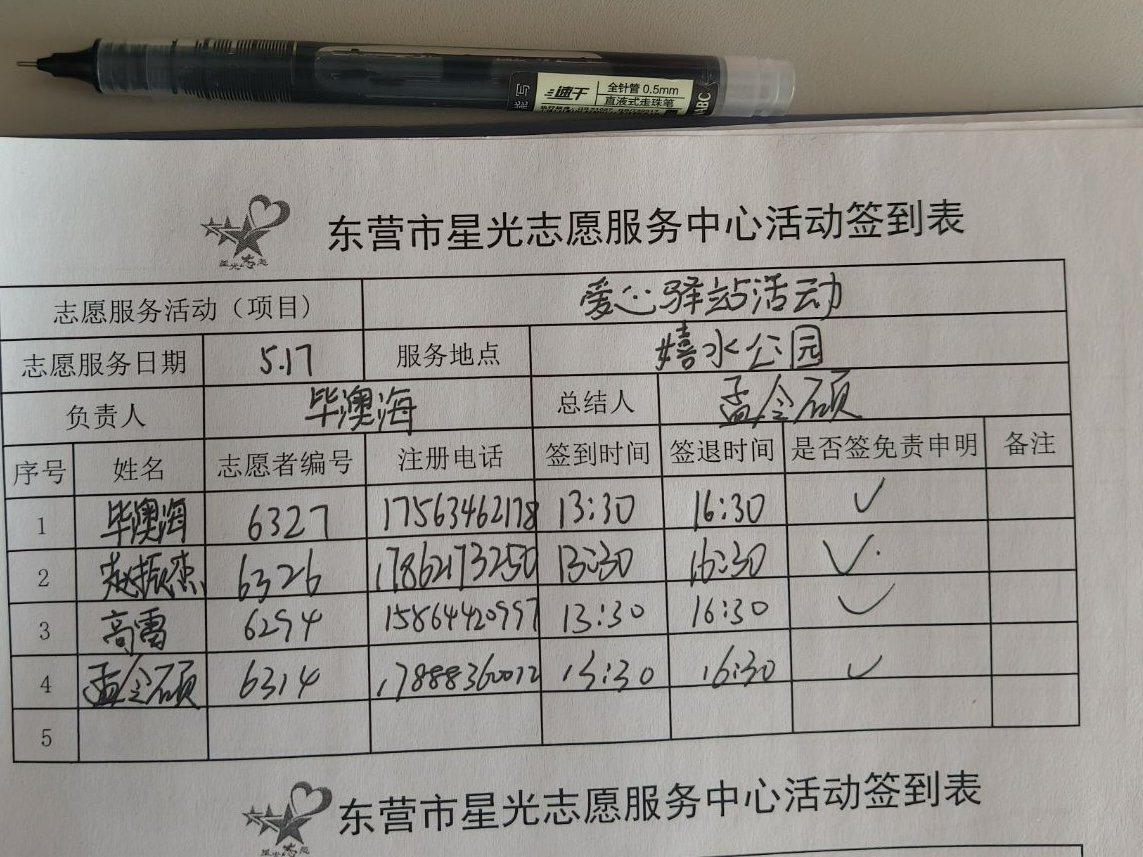 速干 全针管 0.5mm
直液式走珠笔
能写
ABC
东营市星光志愿服务中心活动签到表
星光志愿
志愿服务活动（项目） 爱心驿站活动
志愿服务日期 5.17 服务地点 嬉水公园
负责人 毕澳海 总结人 孟令硕
序号 姓名 志愿者编号 注册电话 签到时间 签退时间 是否签免责申明 备注
1 毕澳海 6327 17563462178 13:30 16:30 ✓
2 赵振杰 6326 17862173250 13:30 16:30 ✓
3 高雷 6294 15864420997 13:30 16:30 ✓
4 孟令硕 6314 17888360012 13:30 16:30 ✓
5
东营市星光志愿服务中心活动签到表
星光志愿